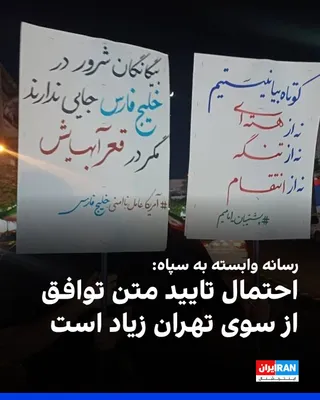 بیگانگان شرور در
خلیج فارس جایی ندارند
مگر در قعر آبهایش
#آمریکا عامل ناامنی خلیج فارس
کوتاه بیا نیستیم
نه از هسته‌ای
نه از تنگه
نه از انتقام
#پشتیبان رهبریم
رسانه وابسته به سپاه:
احتمال تایید متن توافق
از سوی تهران زیاد است
ایران IRAN
اینترنشنال